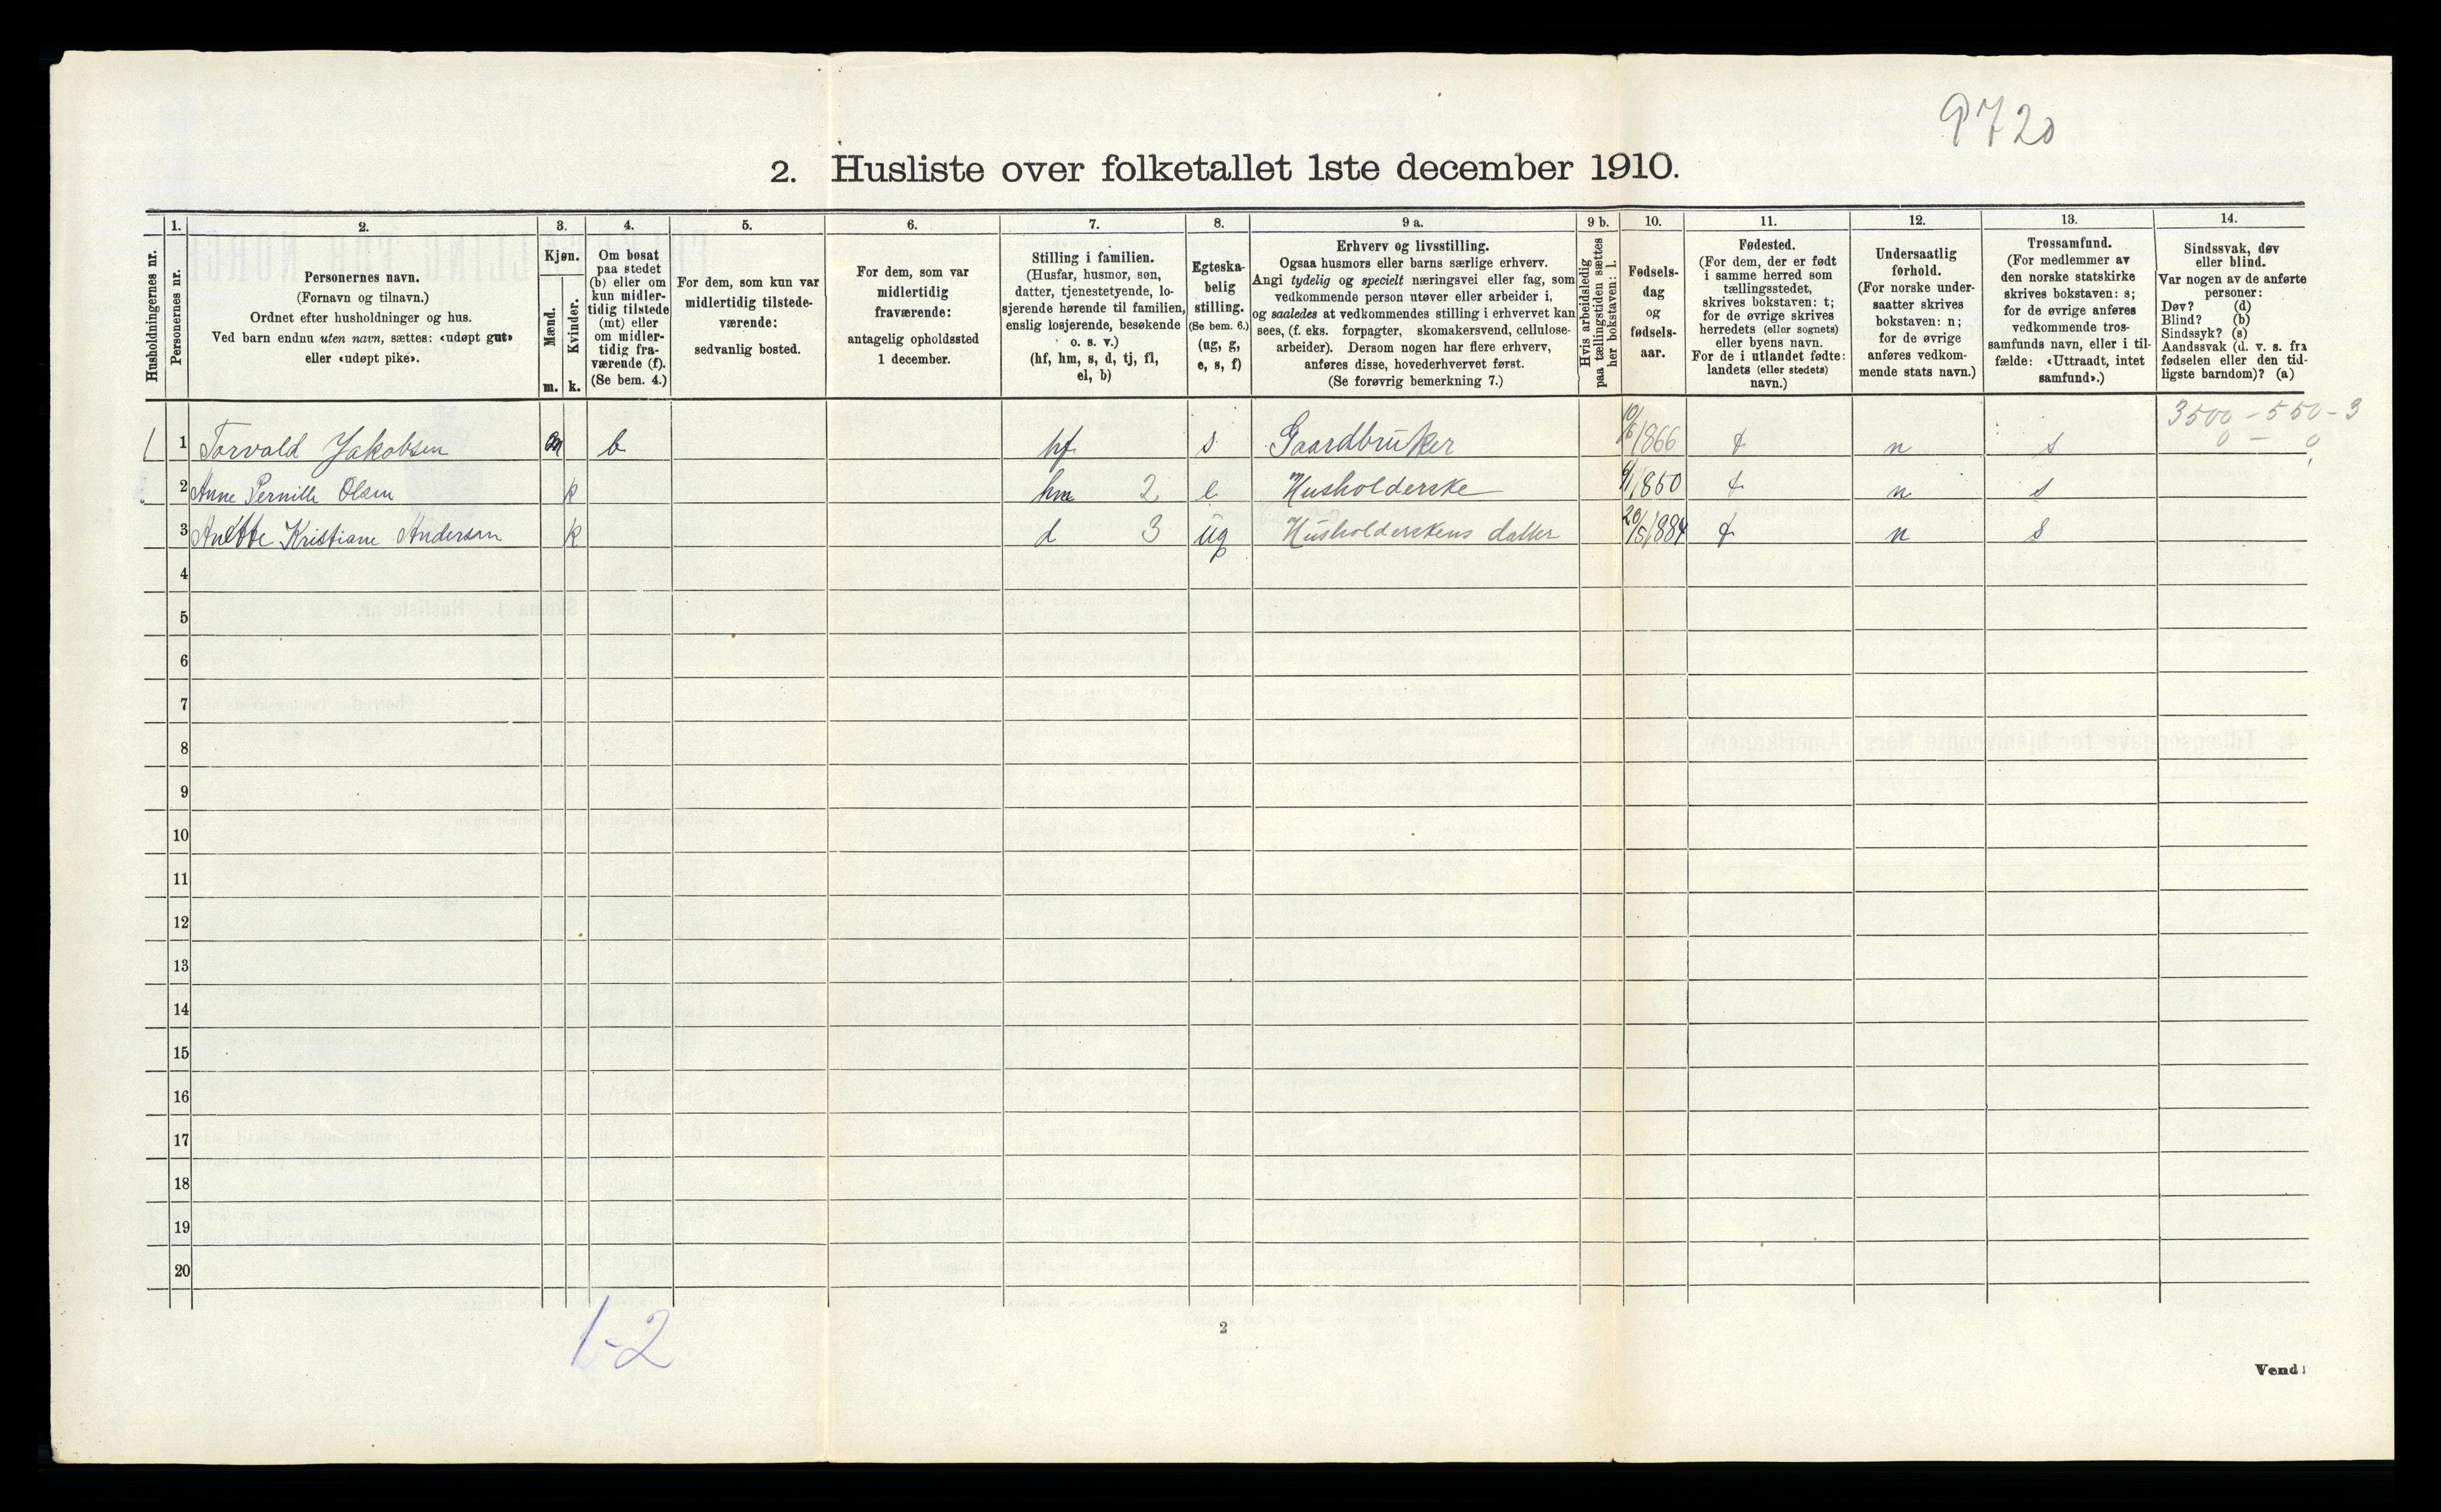 9720
2. Husliste over folketallet 1ste december 1910.
Husholdningernes nr.
1.
Personernes nr.
2.
Personernes navn.
(Fornavn og tilnavn.)
Ordnet efter husholdninger og hus.
Ved barn endnu uten navn, sættes: «udøpt gut»
eller «udøpt pike».
3.
Kjøn.
Mænd.
Kvinder.
m. k.
4.
Om bosat
paa stedet
(b) eller om
kun midler-
tidig tilstede
(mt) eller
om midler-
tidig fra-
værende (f).
(Se bem. 4.)
5.
For dem, som kun var
midlertidig tilstede-
værende:
sedvanlig bosted.
6.
For dem, som var
midlertidig
fraværende:
antagelig opholdssted
1 december.
7.
Stilling i familien.
(Husfar, husmor, søn,
datter, tjenestetyende, lo-
sjerende hørende til familien,
enslig losjerende, besøkende
o. s. v.)
(hf, hm, s, d, tj, fl,
el, b)
8.
Egteska-
belig
stilling.
(Se bem. 6.)
(ug, g,
e, s, f)
9 a.
Erhverv og livsstilling.
Ogsaa husmors eller barns særlige erhverv.
Angi tydelig og specielt næringsvei eller fag, som
vedkommende person utøver eller arbeider i,
og saaledes at vedkommendes stilling i erhvervet kan
sees, (f. eks. forpagter, skomakersvend, cellulose-
arbeider). Dersom nogen har flere erhverv,
anføres disse, hovederhvervet først.
(Se forøvrig bemerkning 7.)
9 b.
Hvis arbeidsledig
paa tællingstiden sættes
her bokstaven: l.
10.
Fødsels-
dag
og
fødsels-
aar.
11.
Fødested.
(For dem, der er født
i samme herred som
tællingsstedet,
skrives bokstaven: t;
for de øvrige skrives
herredets (eller sognets)
eller byens navn.
For de i utlandet fødte:
landets (eller stedets)
navn.)
12.
Undersaatlig
forhold.
(For norske under-
saatter skrives
bokstaven: n;
for de øvrige
anføres vedkom-
mende stats navn.)
13.
Trossamfund.
(For medlemmer av
den norske statskirke
skrives bokstaven: s;
for de øvrige anføres
vedkommende tros-
samfunds navn, eller i til-
fælde: «Uttraadt, intet
samfund».)
14.
Sindssvak, døv
eller blind.
Var nogen av de anførte
personer:
Døv? (d)
Blind? (b)
Sindssyk? (s)
Aandssvak (d. v. s. fra
fødselen eller den tid-
ligste barndom)? (a)
3500 - 550 - 3
0 - 0
1 1 Torvald Jakobsen m b hf s Gaardbruker 10/6 1866 t n s
2 Anne Pernille Olsen k hm 2 e Husholderske 6/1 1850 t n s
3 Anette Kristiane Andersen k d 3 ug Husholderskens datter 20/5 1884 t n s
4
5
6
7
8
9
10
11
12
13
14
15
16
17
18
19
20
1-2
2
Vend!